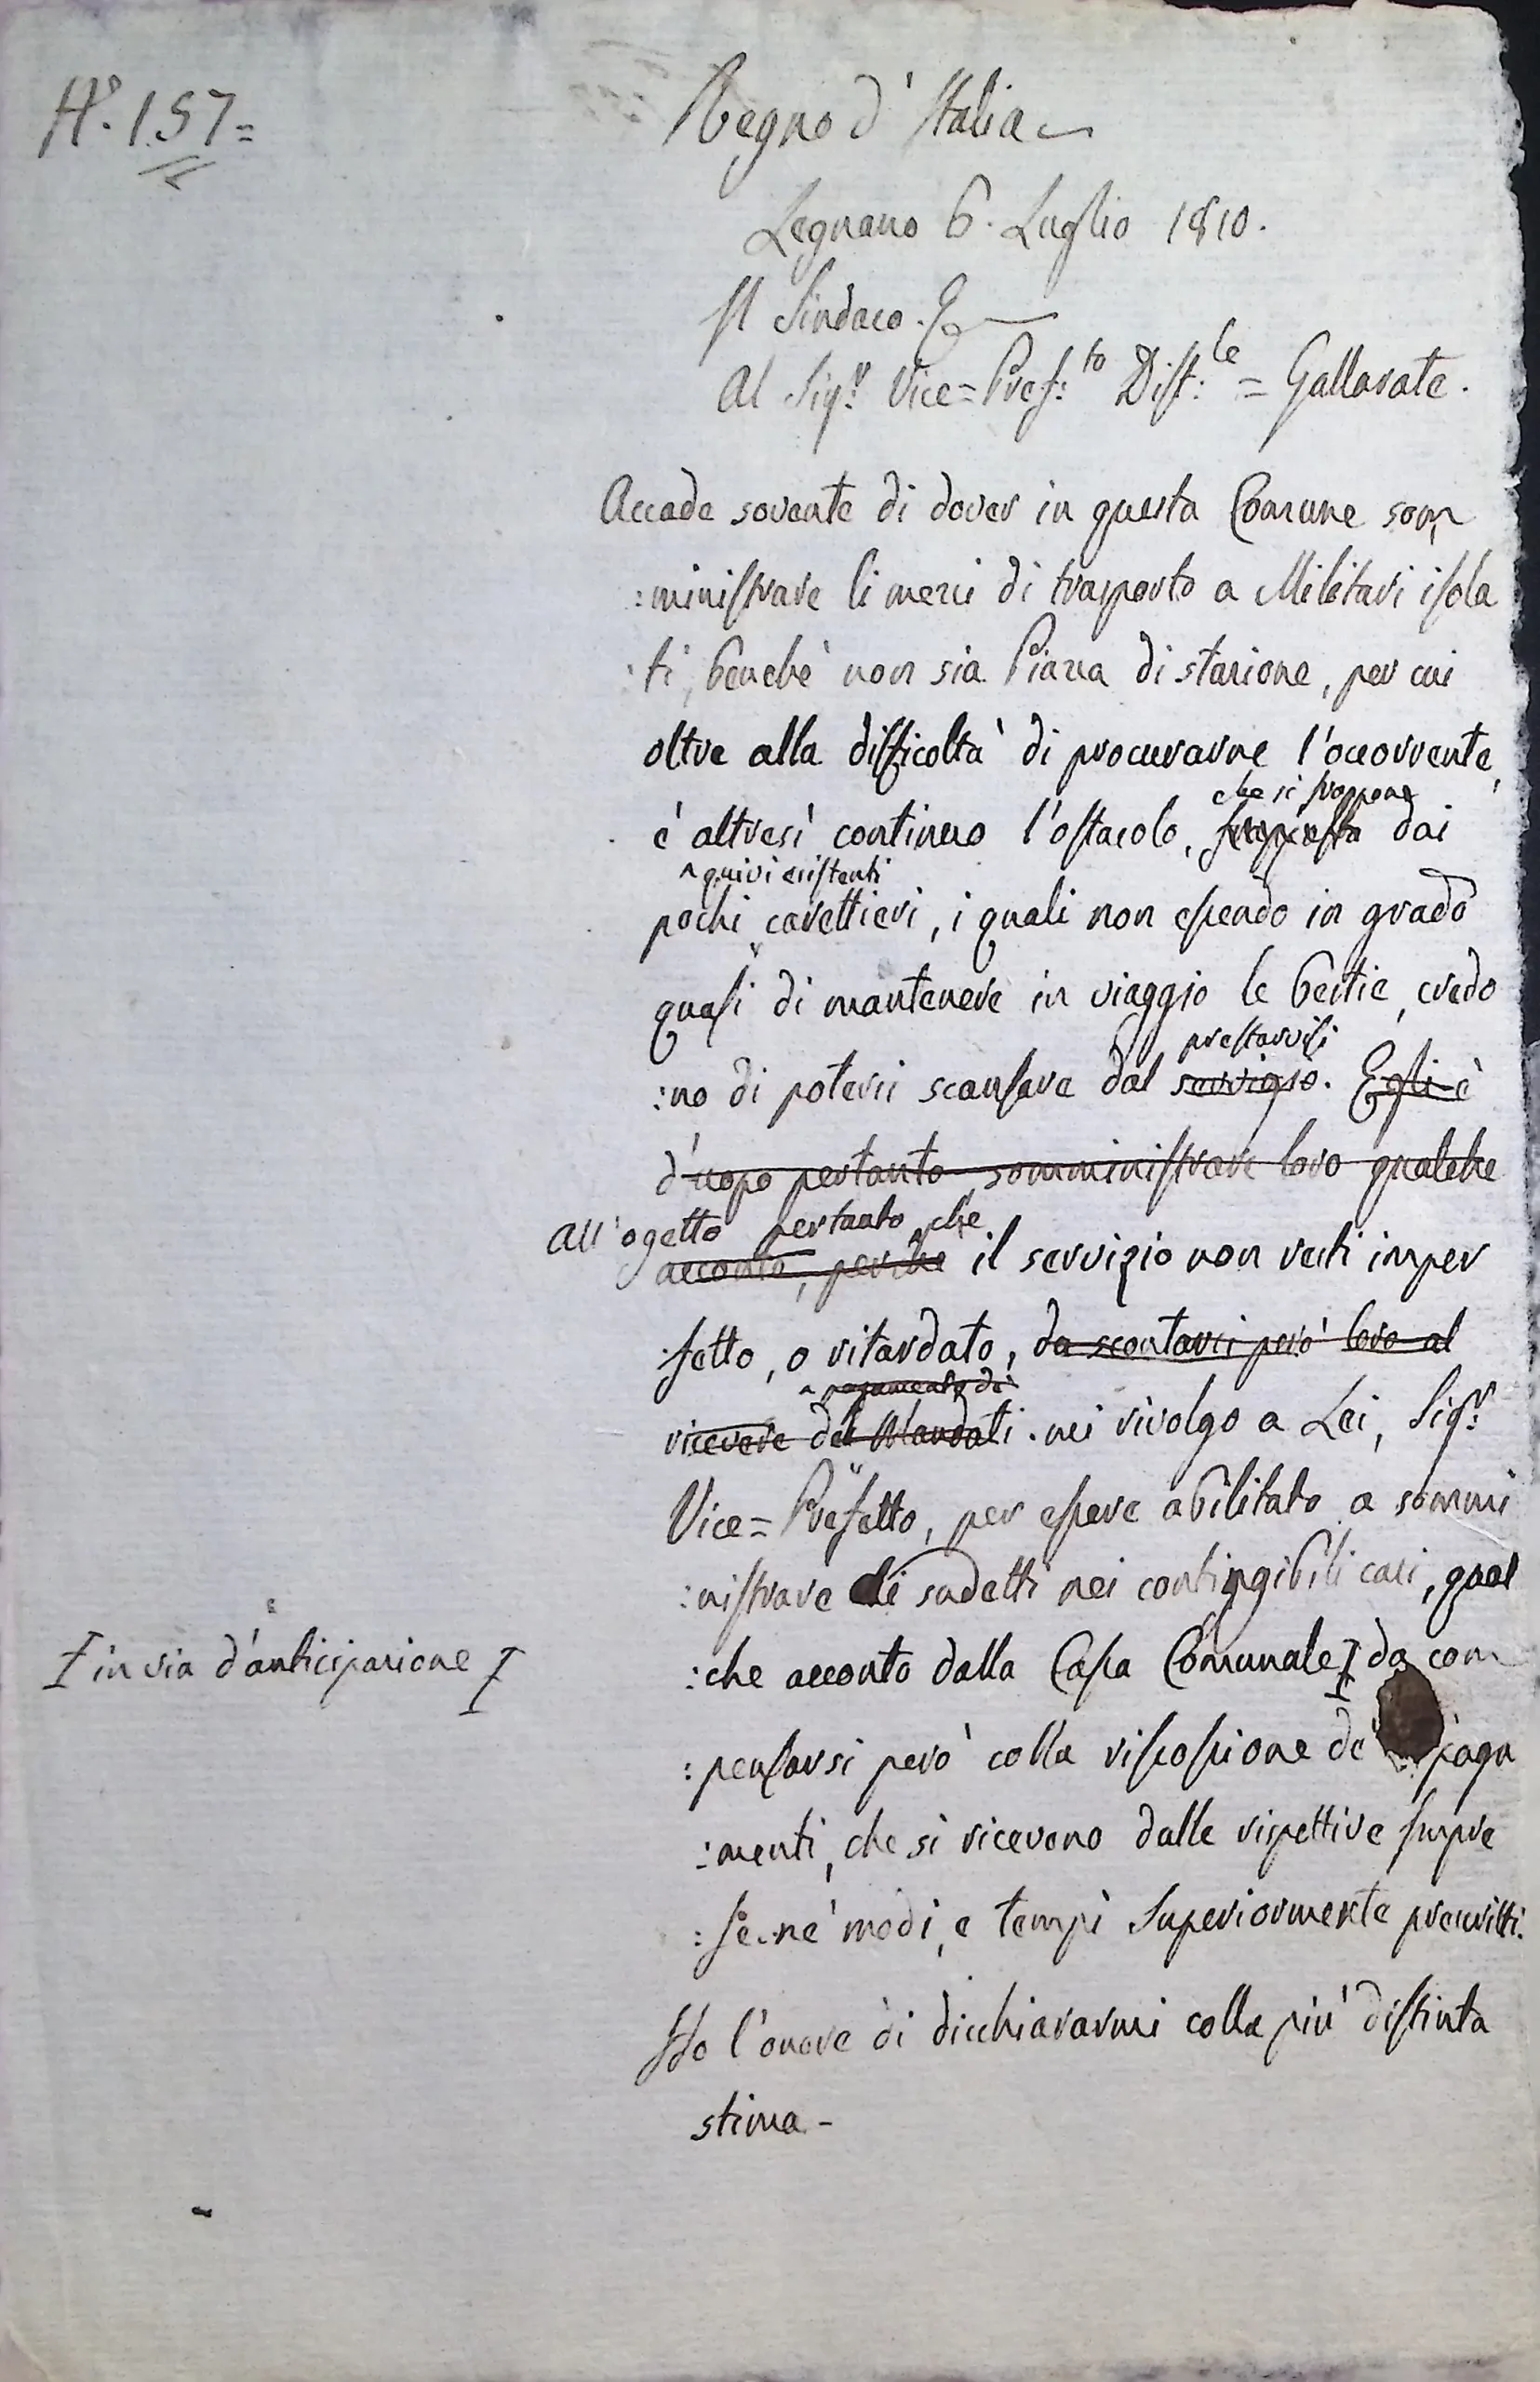 N.º 157=
Regno d'Italia
Legnano 6. Luglio 1810.
Il Sindaco.
Al Sig.r Vice=Pref:to Dist:le = Gallarate.
Accade sovente di dover in questa Comune som
:ministrare li mezzi di trasporto a Militari isola
:ti, benchè non sia Piazza di stazione, per cui
oltre alla difficoltà di procurarne l'occorrente,
che si frappone
è altresì continuo l'ostacolo, frapposto dai
quivi esistenti
pochi carettieri, i quali non essendo in grado
quasi di mantenere in viaggio le bestie, credo
prestarvisi
:no di potersi scansare dal servigio. Egli è
d'uopo pertanto somministrare loro qualche
All'ogetto pertanto che
acconto, perchè il servizio non resti imper
:fetto, o ritardato, da scontarsi però loro al
pagamento di
ricevere del Mandati. mi rivolgo a Lei, Sig.r
Vice=Prefetto, per essere abilitato a sommi
:nistrare ai sudetti nei contingibili casi, qual
:che acconto dalla Cassa Comunale da com
in via d'anticipazione
:pensarsi però colla riscossione de' paga
:menti, che si ricevono dalle rispettive Impre
:se ne' modi, e tempi Superiormente prescritti.
Ho l'onore di dicchiararmi colla più distinta
stima -